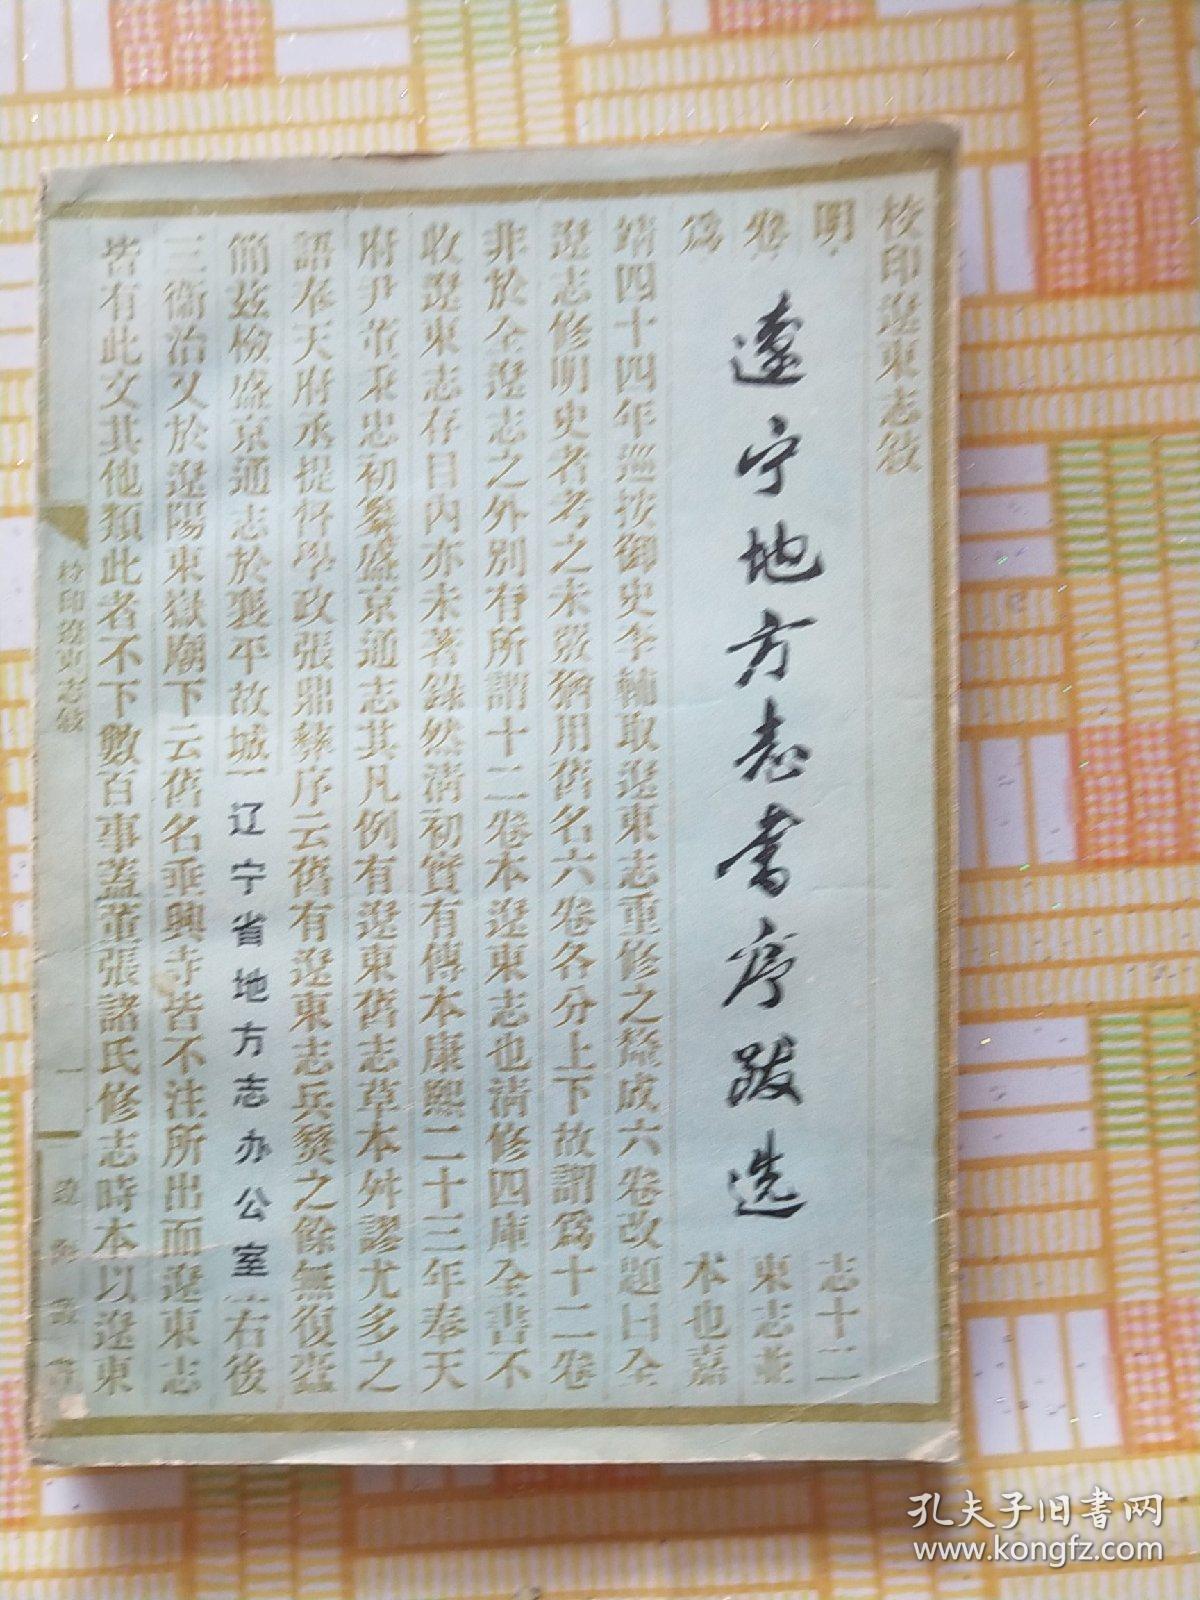 校印遼東志敍
明
志十二
卷
東志並
爲
本也嘉
遼宁地方志書序跋选
靖四十四年巡按御史李輔取遼東志重修之釐成六卷改題曰全
遼志修明史者考之未覈猶用舊名六卷各分上下故謂爲十二卷
非於全遼志之外別有所謂十二卷本遼東志也清修四庫全書不
收遼東志存目內亦未著錄然清初實有傳本康熙二十三年奉天
府尹董秉忠初纂盛京通志其凡例有遼東舊志草本舛謬尤多之
語奉天府丞提督學政張鼎彝序云舊有遼東志兵燹之餘無復蠹
簡茲檢盛京通志於襄平故城
右後
辽宁省地方志办公室
三衞治又於遼陽東嶽廟下云舊名垂興寺皆不注所出而遼東志
皆有此文其他類此者不下數百事蓋董張諸氏修志時本以遼東
校印遼東志敍
一
遼海叢書
孔夫子旧书网
www.kongfz.com